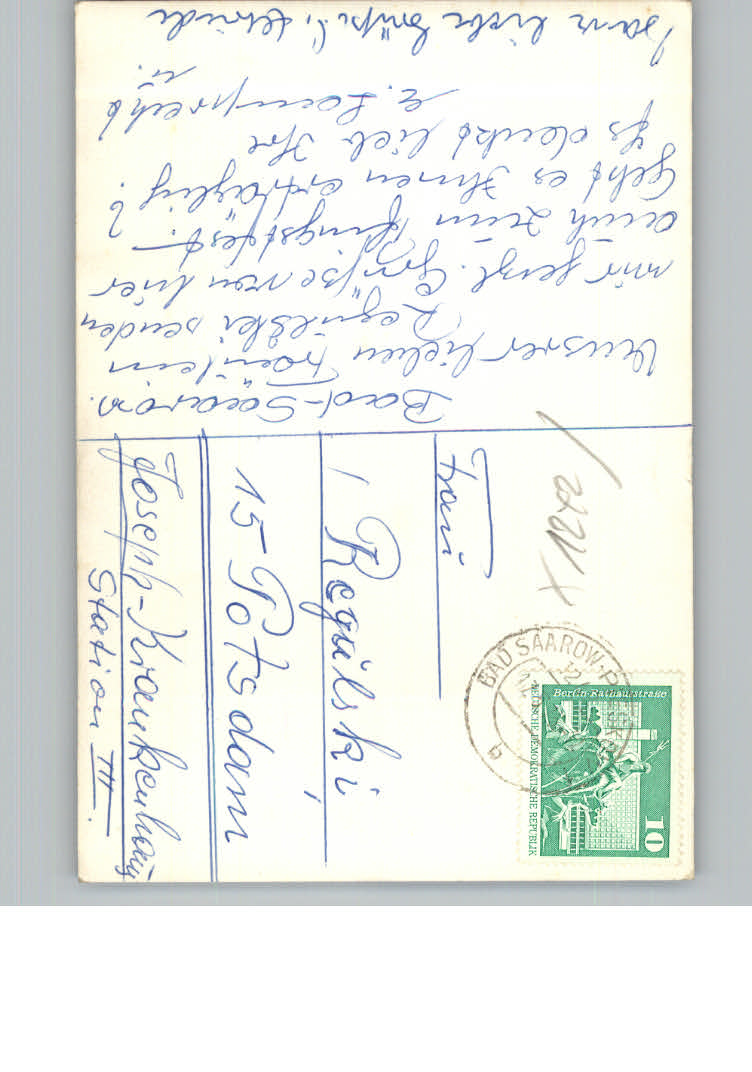 Bad-Saarow.
Unsrer lieben Fräulein
Regulski senden
wir herzl. Grüße von hier
auch zum Pfingstfest.
Geht es Ihnen erträglich?
Es denkt lieb Ihre
E. Lamprecht
u.
Ganz liebe Grüße,
Frau
Regulski
15 Potsdam
Joseph-Krankenhaus
Station III.
BAD SAAROW-P
b
Berlin-Rathausstraße
DEUTSCHE DEMOKRATISCHE REPUBLIK
10